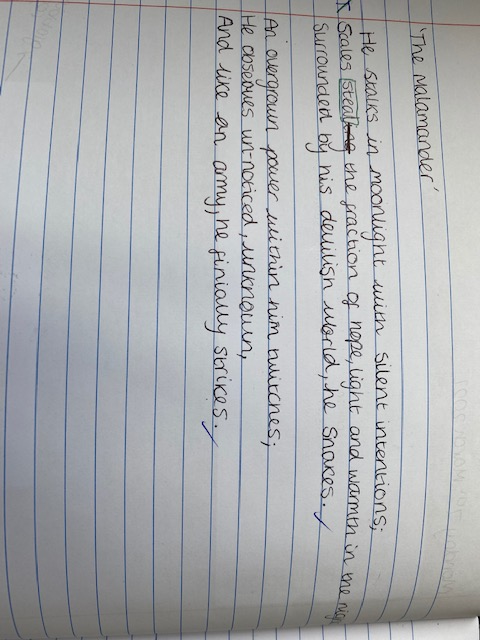 'The Malamander'
He stalks in moonlight with silent intentions;
Scales steal the fraction of hope, light and warmth in the night
Surrounded by his devilish world, he snakes.
An overgrown power within him twitches;
He observes un-noticed, unknown,
And like an army, he finially strikes.